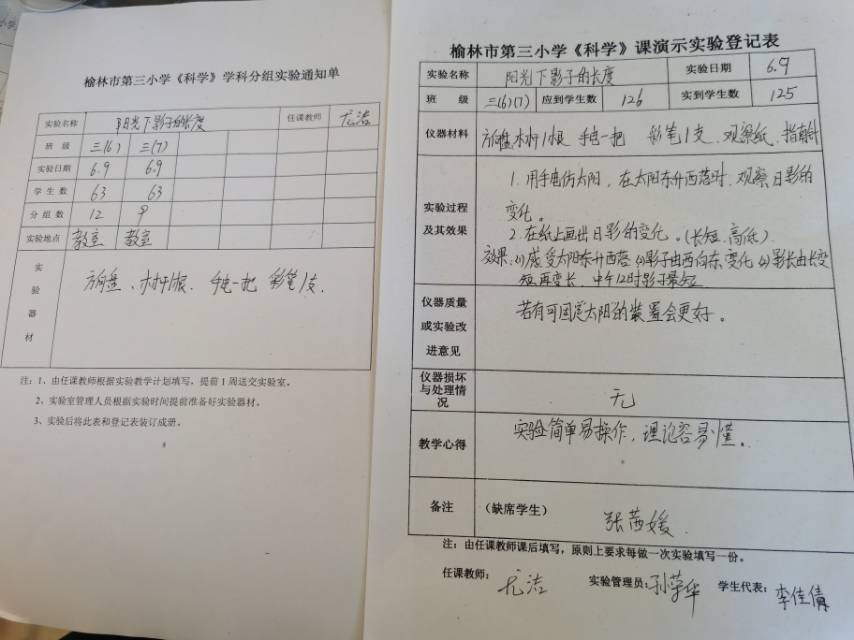 榆林市第三小学《科学》学科分组实验通知单
实验名称 阳光下影子的长度 任课教师 尤洁
班 级 三(6) 三(7)
实验日期 6.9 6.9
学生数 63 63
分组数 12 9
实验地点 教室 教室
实验器材 方向盘、木杆1根、手电一把 彩笔1支.
注：1、由任课教师根据实验教学计划填写，提前1周送交实验室。
2、实验室管理人员根据实验时间提前准备好实验器材。
3、实验后将此表和登记表装订成册。
榆林市第三小学《科学》课演示实验登记表
实验名称 阳光下影子的长度 实验日期 6.9
班 级 三(6)(7) 应到学生数 126 实到学生数 125
仪器材料 方向盘、木杆1根 手电一把 彩笔1支、观察纸、指南针
实验过程及其效果
1. 用手电仿太阳，在太阳东升西落时，观察日影的
变化。
2. 在纸上画出日影的变化。(长短、高低)
效果：(1)感受太阳东升西落 (2)影子由西向东变化 (3)影长由长变
短再变长，中午12时影子最短
仪器质量或实验改进意见 若有可固定太阳的装置会更好。
仪器损坏与处理情况 无
教学心得 实验简单易操作，理论容易懂。
备注 （缺席学生） 张茜媛.
注：由任课教师课后填写，原则上要求每做一次实验填写一份。
任课教师： 尤洁 实验管理员: 孙荣华 学生代表: 李佳倩